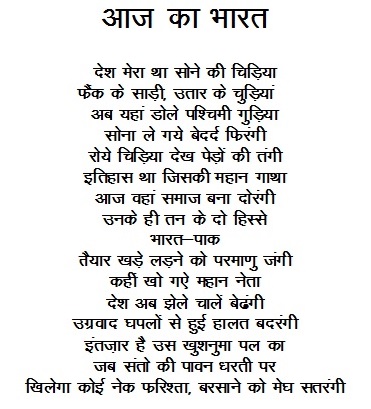 आज का भारत
देश मेरा था सोने की चिड़िया
फैंक के साड़ी, उतार के चुड़ियां
अब यहां डोले पश्चिमी गुड़िया
सोना ले गये बेदर्द फिरंगी
रोये चिड़िया देख पेड़ों की तंगी
इतिहास था जिसकी महान गाथा
आज वहां समाज बना दोरंगी
उनके ही तन के दो हिस्से
भारत–पाक
तैयार खड़े लड़ने को परमाणु जंगी
कहीं खो गऐ महान नेता
देश अब झेले चालें बेढंगी
उग्रवाद घपलों से हुई हालत बदरंगी
इंतज़ार है उस खुशनुमा पल का
जब संतो की पावन धरती पर
खिलेगा कोई नेक फरिश्ता, बरसाने को मेघ सतरंगी